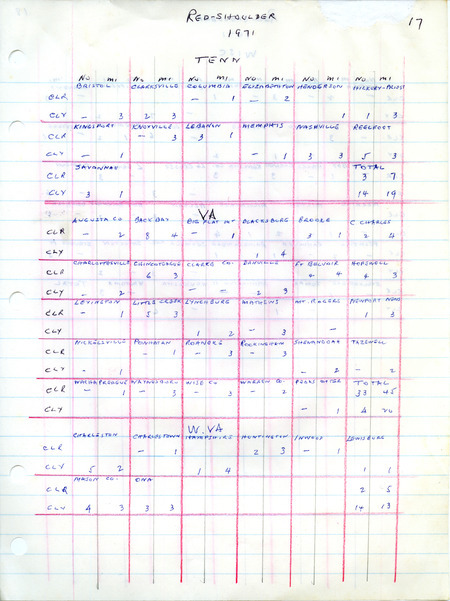 RED-SHOULDER 17
1971
TENN
No. mi No. mi No. mi No. mi No. mi No. mi
BRISTOL CLARKSVILLE COLUMBIA ELIZABETHTON HENDERSON HICKORY-PRIEST
CLR - 1 - 2
CLY - 3 2 3 1 1 3
KINGSPORT KNOXVILLE LEBANON MEMPHIS NASHVILLE REELFOOT
CLR - 3 3 1
CLY - 1 - 1 3 3 5 3
SAVANNAH TOTAL
CLR 3 7
CLY 3 1 14 19
VA
AUGUSTA CO BACK BAY BIG FLAT MT BLACKSBURG BROOKE C CHARLES
CLR - 2 8 4 - 1 3 1 2 4
CLY 1 4
CHARLOTTESVILLE CHINCOTEAGUE CLARKE CO. DANVILLE FT BELVOIR HOPEWELL
CLR 6 3 4 4 4 3
CLY - 2 - - 2 3
LEXINGTON LITTLE CREEK LYNCHBURG MATHEWS MT. ROGERS NEWPORT NEWS
CLR - 1 5 3 1 3
CLY 1 2 - 3 -
NICKELSVILLE POWHATAN ROANOKE ROCKINGHAM SHENANDOAH TAZEWELL
CLR - 1 - 3 - 3
CLY - 1 - 2 - 2
WACHAPREAGUE WAYNESBORO WISE CO WARREN CO. PEAKS OTTER TOTAL
CLR - 1 - 3 - 3 - 2 33 45
CLY - 1 4 20
W. VA
CHARLESTON CHARLESTOWN HAMPSHIRE HUNTINGTON INWOOD LEWISBURG
CLR - 1 2 3 - 1
CLY 5 2 1 4 1 1
MASON CO. ONA
CLR 2 5
CLY 4 3 3 3 14 13